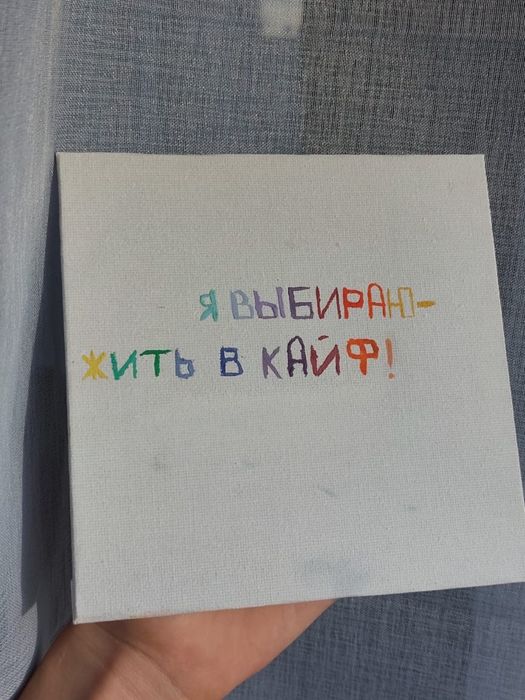 Я ВЫБИРАЮ-
ЖИТЬ В КАЙФ!